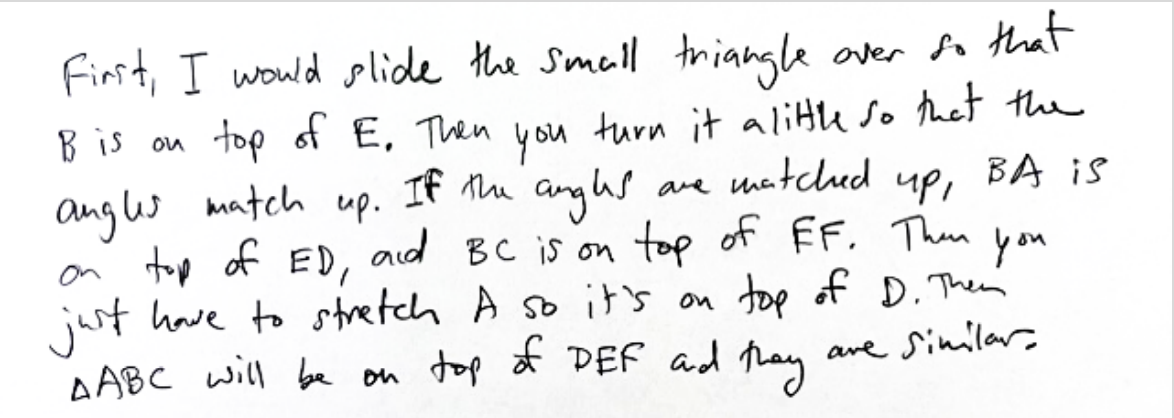 First, I would slide the small triangle over so that
B is on top of E. Then you turn it a little so that the
angles match up. If the angles are matched up, BA is
on top of ED, and BC is on top of EF. Then you
just have to stretch A so it's on top of D. Then
△ABC will be on top of DEF and they are similar.